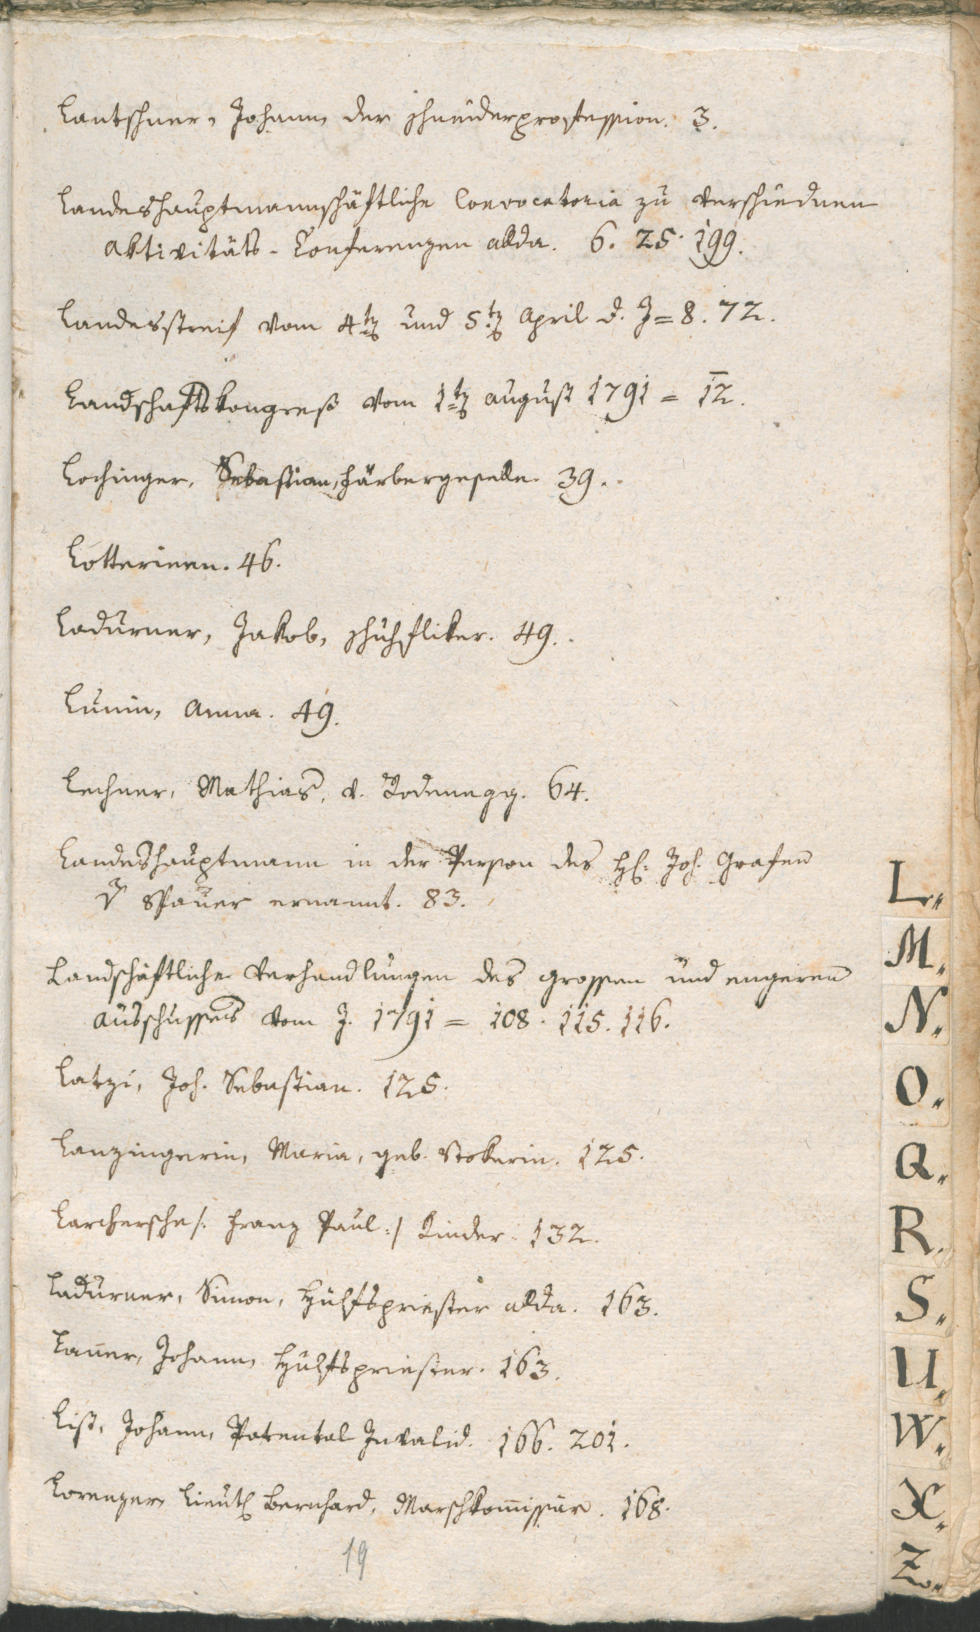 Lantschner, Johann der Schneiderprofession. 3.
Landeshauptmannschäftliche Convocatoria zu verschiednen
Aktivitäts-Konferenzen allda. 6. 25. 199.
Landesstreif vom 4tn und 5tn April d. J = 8. 72.
Landschaftskongreß vom 1tn August 1791 = 12.
Lochinger, Sebastian, Färbergeselle. 39.
Lotterieen. 46.
Ladurner, Jakob, Schuhfliker. 49.
Lunin, Anna. 49.
Lechner, Mathias, v. Rodenegg. 64.
Landeshauptmann in der Person des H: Joh. Grafen
v Spaur ernannt. 83.
Landschäftliche Verhandlungen des grossen und engeren
Ausschusses vom J. 1791 = 108. 115. 116.
Latzi, Joh. Sebastian. 125.
Lanzingerin, Maria, geb. Stokerin. 125.
Larchersche /: Franz Paul :/ Kinder. 132.
Ladurner, Simon, Hülfspriester allda. 163.
Lanner, Johann, Hülfspriester. 163.
List, Johann, Patental Invalid. 166. 201.
Lorenzer, Lieut: Bernhard, Marschkommissär. 168.
19
L.
M.
N.
O.
Q.
R.
S.
U.
W.
X.
Z.